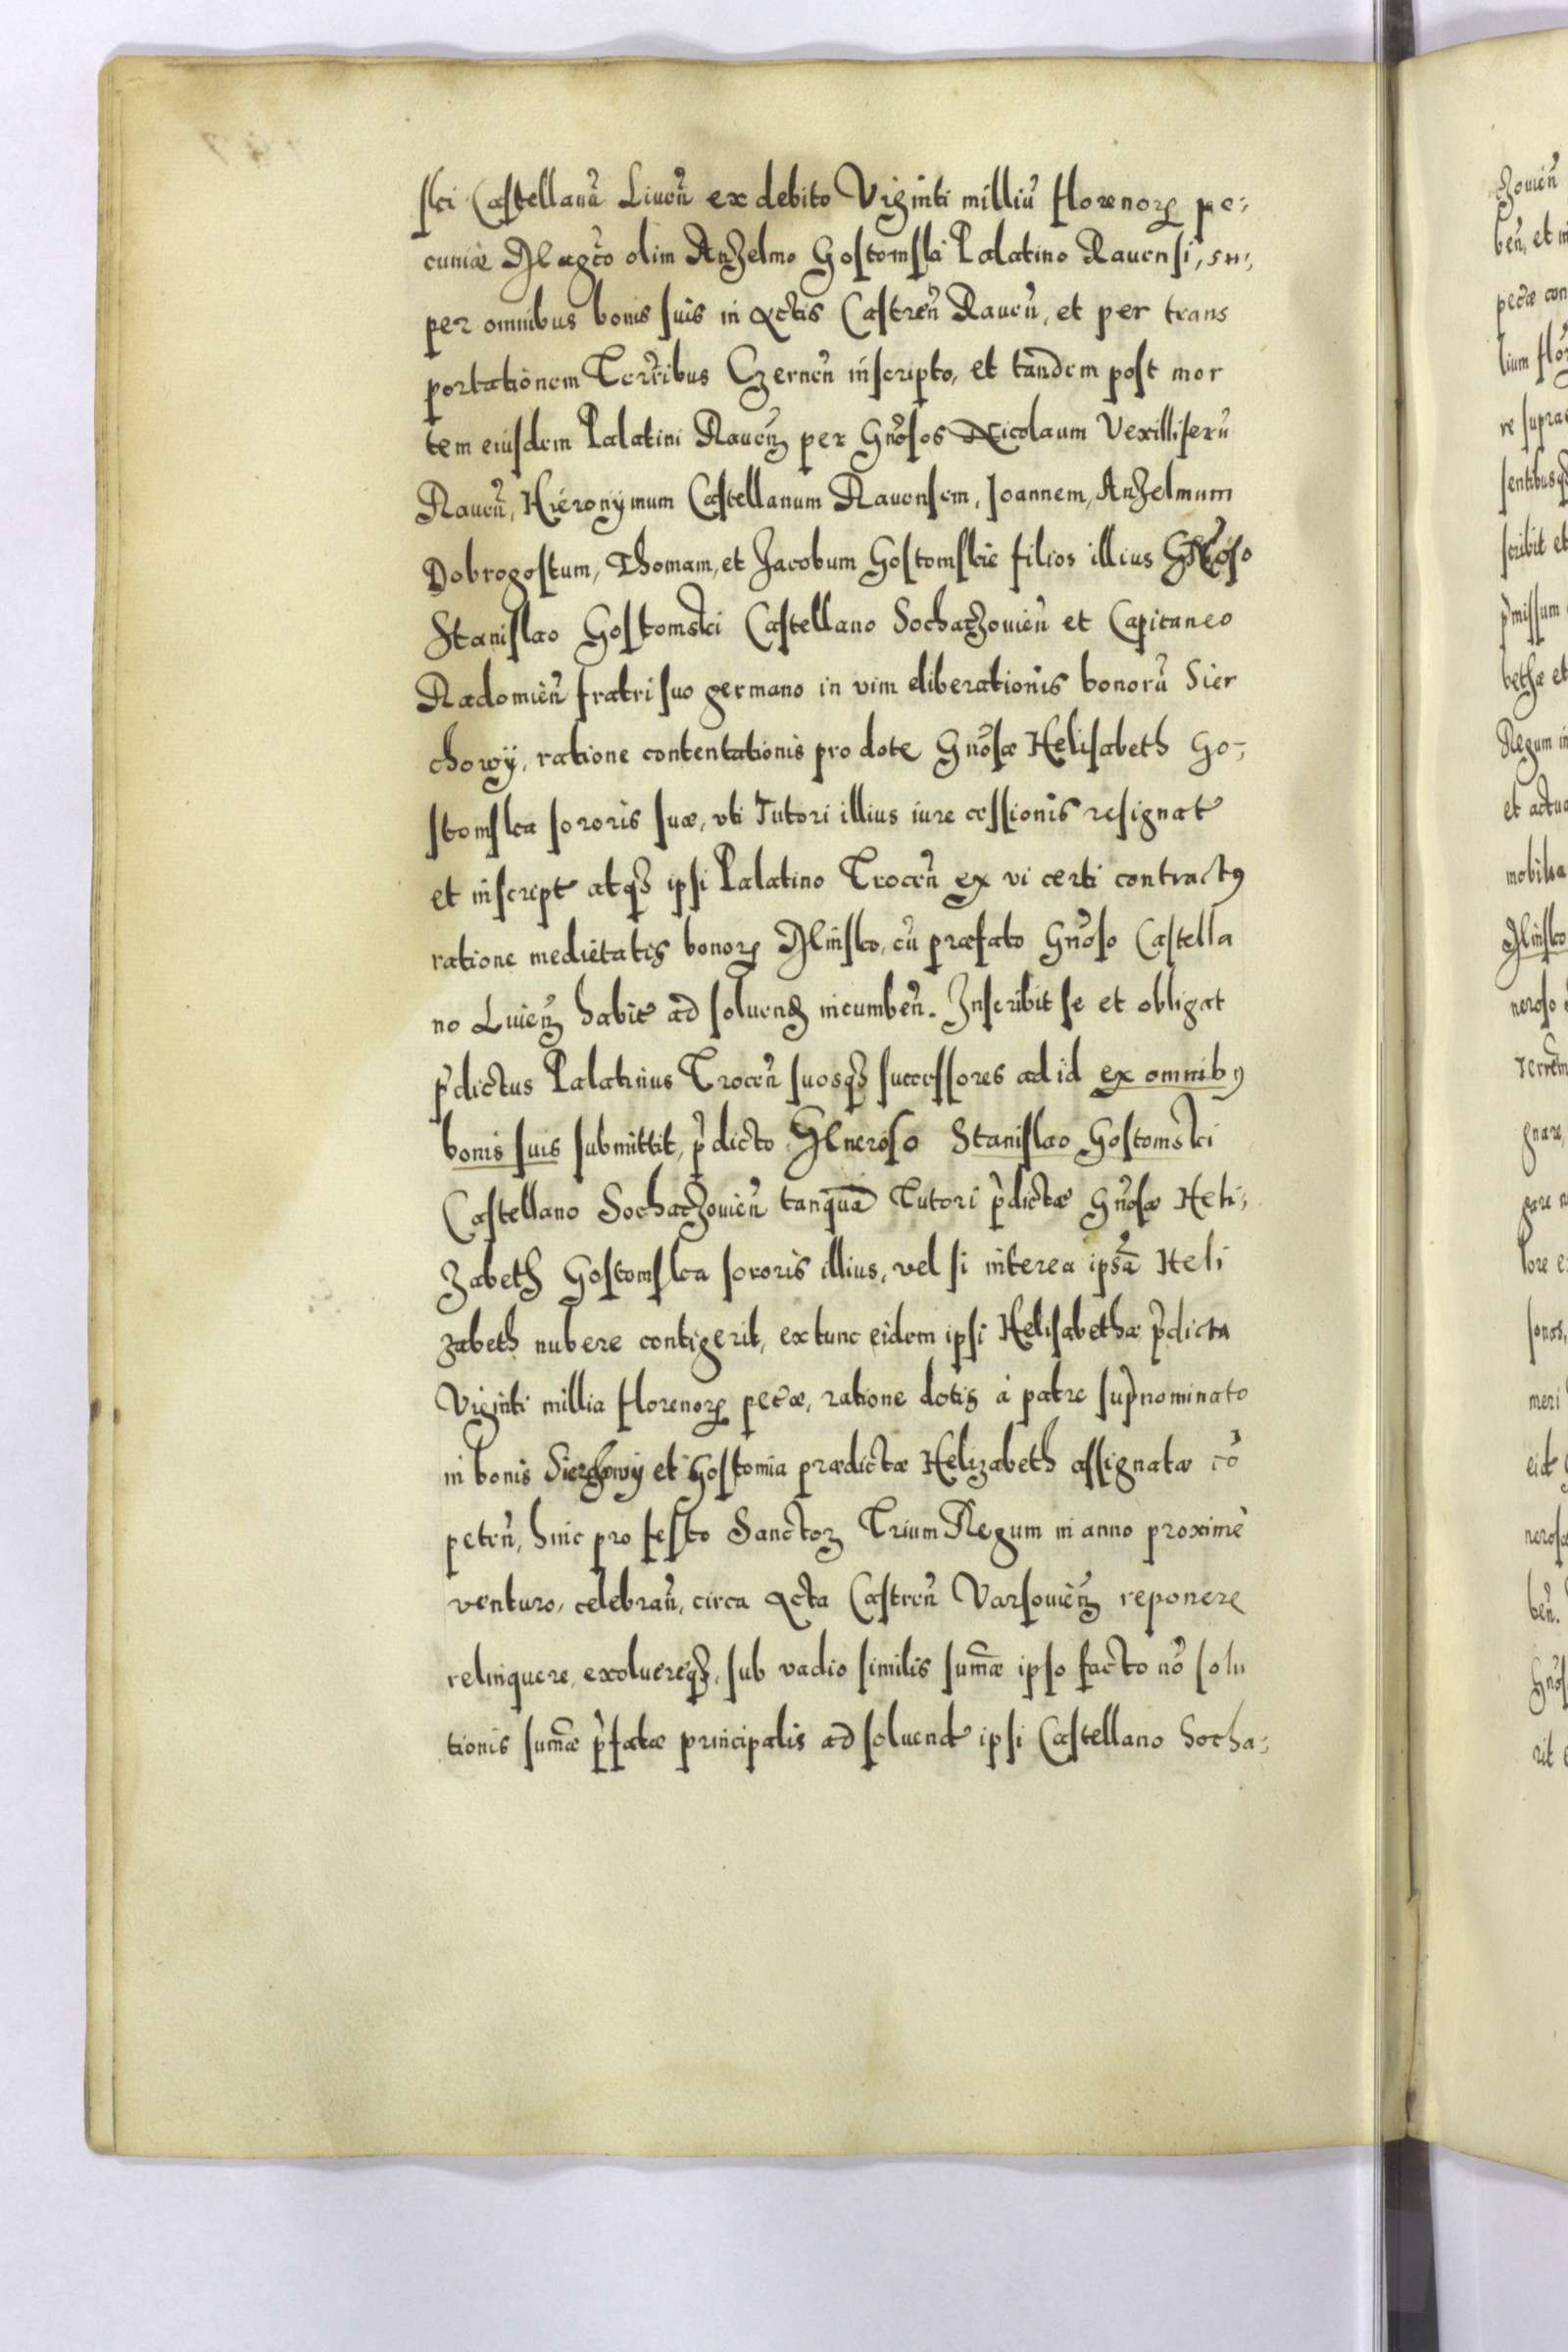 ski Castellanũ Livẽn ex debito Viginti milliũ florenorꝝ pe-
cuniæ Magco olim Anzelmo Gostomski Palatino Ravensi, su-
per omnibus bonis suis in Actis Castreñ Raveñ, et per trans
portationem Terribus Czerneñ inscripto, et tandem post mor
tem eiusdem Palatini Raveñ per Gnõsos Nicolaum Vexilliferũ
Raveñ, Hieronymum Castellanum Ravensem, Ioannem, Anzelmum
Dobrogostum, Thomam, et Jacobum Gostomskie filios illius Gnõso
Stanislao Gostomski Castellano Sochaczovieñ et Capitaneo
Radomieñ fratri suo germano in vim eliberationis bonorũ Sier
chowy, ratione contentationis pro dote Gnõsæ Helisabeth Go-
stomska sororis suæ, vti Tutori illius iure cessionis resignat
et inscript atqꝫ ipsi Palatino Troceñ ex vi certi contractꝰ
ratione medietatis bonorꝝ Minsko, cũ præfato Gnõso Castella
no Livieñ habit ad soluend incumbeñ. Inscribit se et obligat
p̃dictus Palatinus Troceñ suosqꝫ successores ad id ex omnibꝰ
bonis suis submittit, p̃dicto Gneroso Stanislao Gostomski
Castellano Sochaczovieñ tanquã Tutori p̃dictæ Gnõsæ Heli-
zabeth Gostomska sororis illius, vel si interea ipsã Heli
zabeth nubere contigerit, extunc eidem ipsi Helisabethæ p̃dicta
Viginti millia florenorꝝ pecæ, ratione dotis à patre sup̃nominato
in bonis Sierchowy et Gostomia prædictæ Helizabeth assignatæ cõ
peteñ, hinc pro festo Sanctorꝝ Trium Regum in anno proximè
venturo, celebrañ, circa Acta Castreñ Varsovieñ reponere
relinquere, exoluereqꝫ, sub vadio similis sum̃æ ipso facto nõ solu
tionis sum̃æ p̃fatæ principalis ad soluend ipsi Castellano Socha-